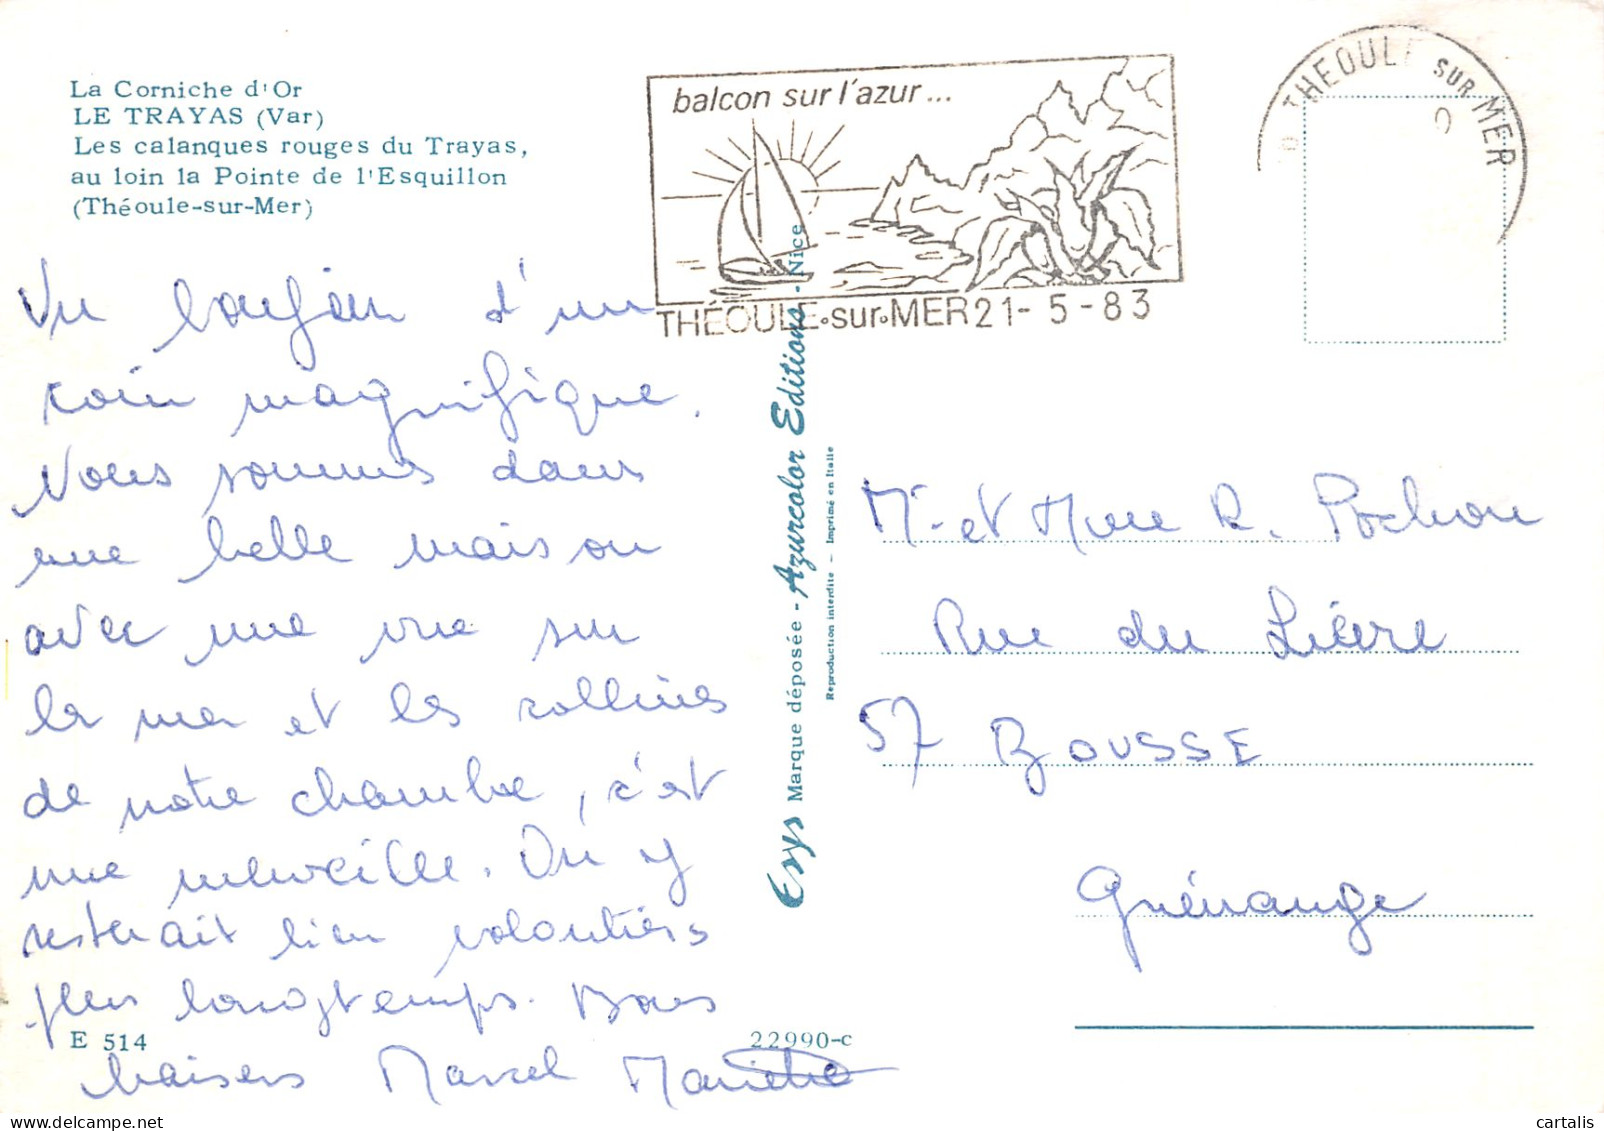 La Corniche d'Or
LE TRAYAS (Var)
Les calanques rouges du Trayas,
au loin la Pointe de l'Esquillon
(Théoule-sur-Mer)
balcon sur l'azur...
THÉOULE•sur•MER 21- 5 - 83
THEOULE SUR MER
Un bonjour d'un
coin magnifique.
Nous sommes dans
une belle maison
avec une vue sur
la mer et les collines
de notre chambre, c'est
une merveille. On y
resterait bien volontiers
plus longtemps. Bons
baisers Marcel
E 514
22990-c
Esys Marque déposée - Azurcolor Editions - Nice
Reproduction interdite - Imprimé en Italie
Mr et Mme R. Pochon
Rue du Lièvre
57 BOUSSE
Guénange
www.delcampe.net
cartalis